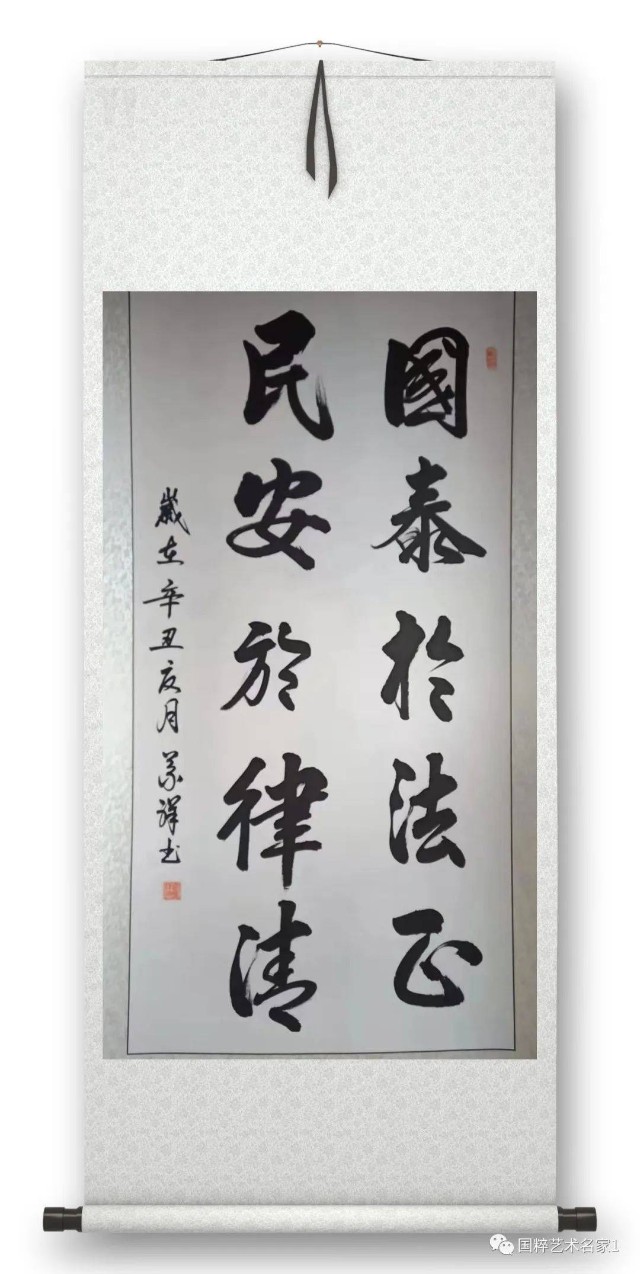 國泰於法正
民安於律清
歲在辛丑夏月義祥书
国粹艺术名家1